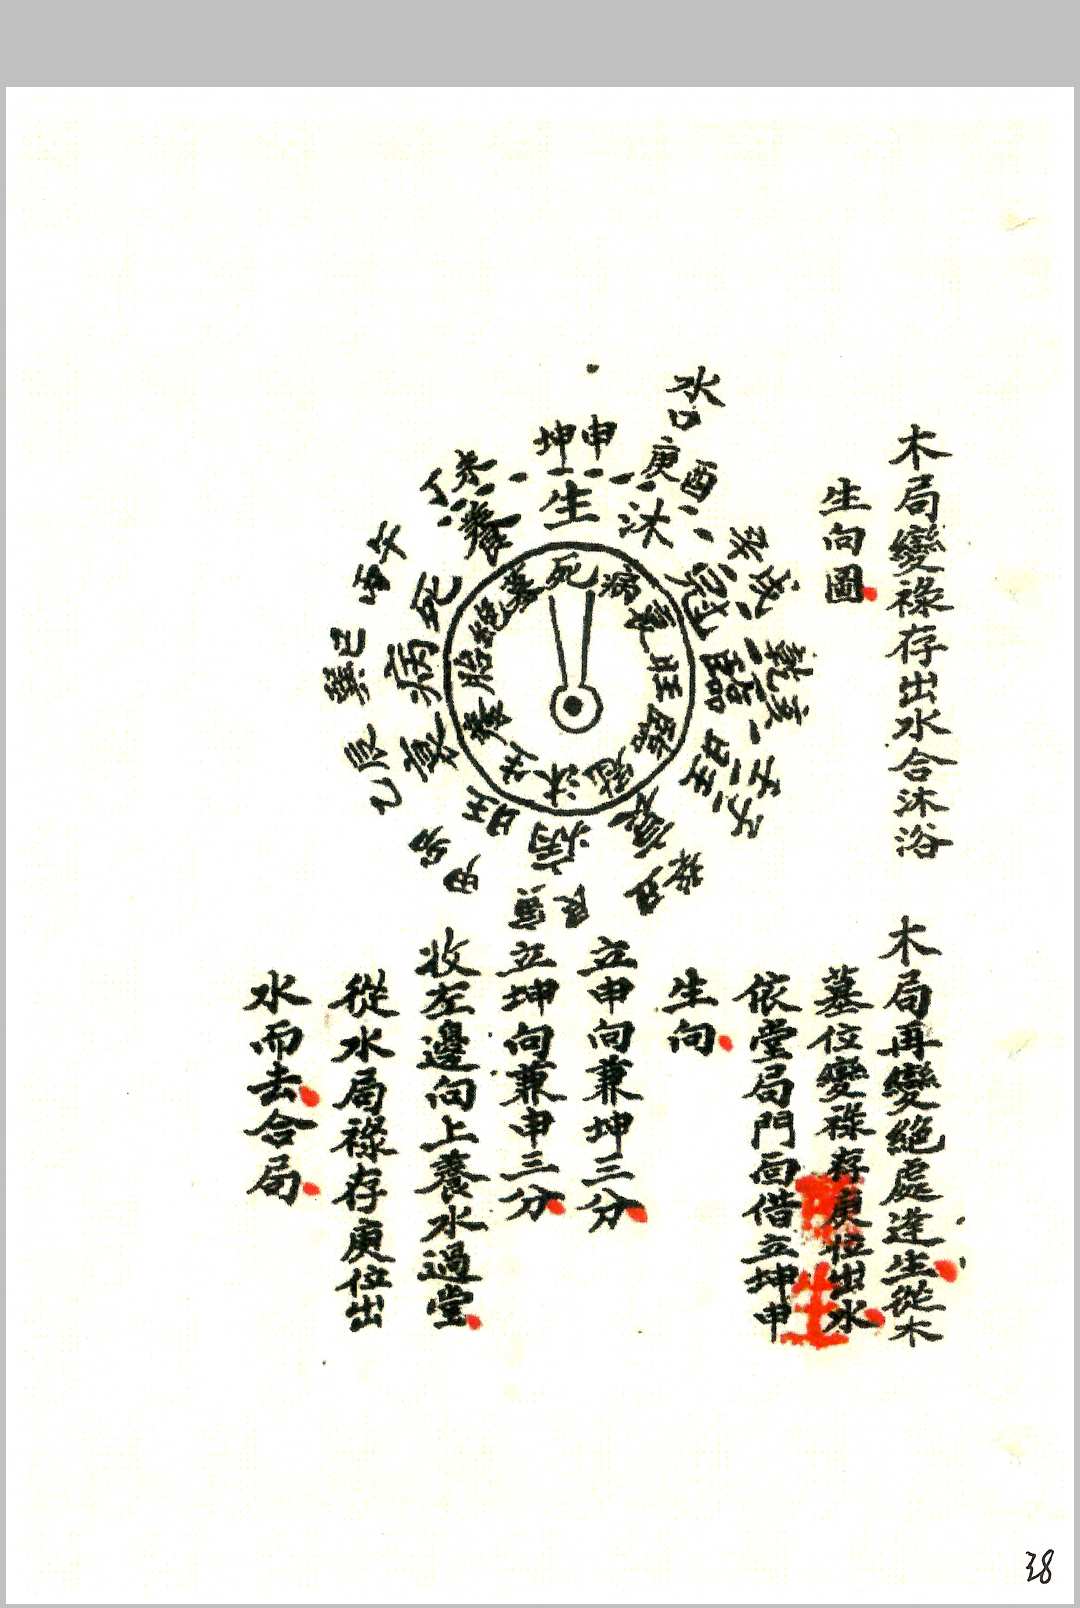 木局變祿存出水合沐浴
生向圖
水口
坤申
庚酉
辛戌
乾亥
壬子
癸丑
艮寅
甲卯
乙辰
巽巳
丙午
丁未
生
沐
冠
臨
旺
衰
病
旺
衰
病
死
養
死
病
衰
旺
臨
冠
沐
生
養
胎
絕
墓
木局再變絕處逢生從木
墓位變祿存庚位出水
依堂局門面借立坤申
生向
立申向兼坤三分
立坤向兼申三分
收左邊向上養水過堂
從水局祿存庚位出
水而去合局
38